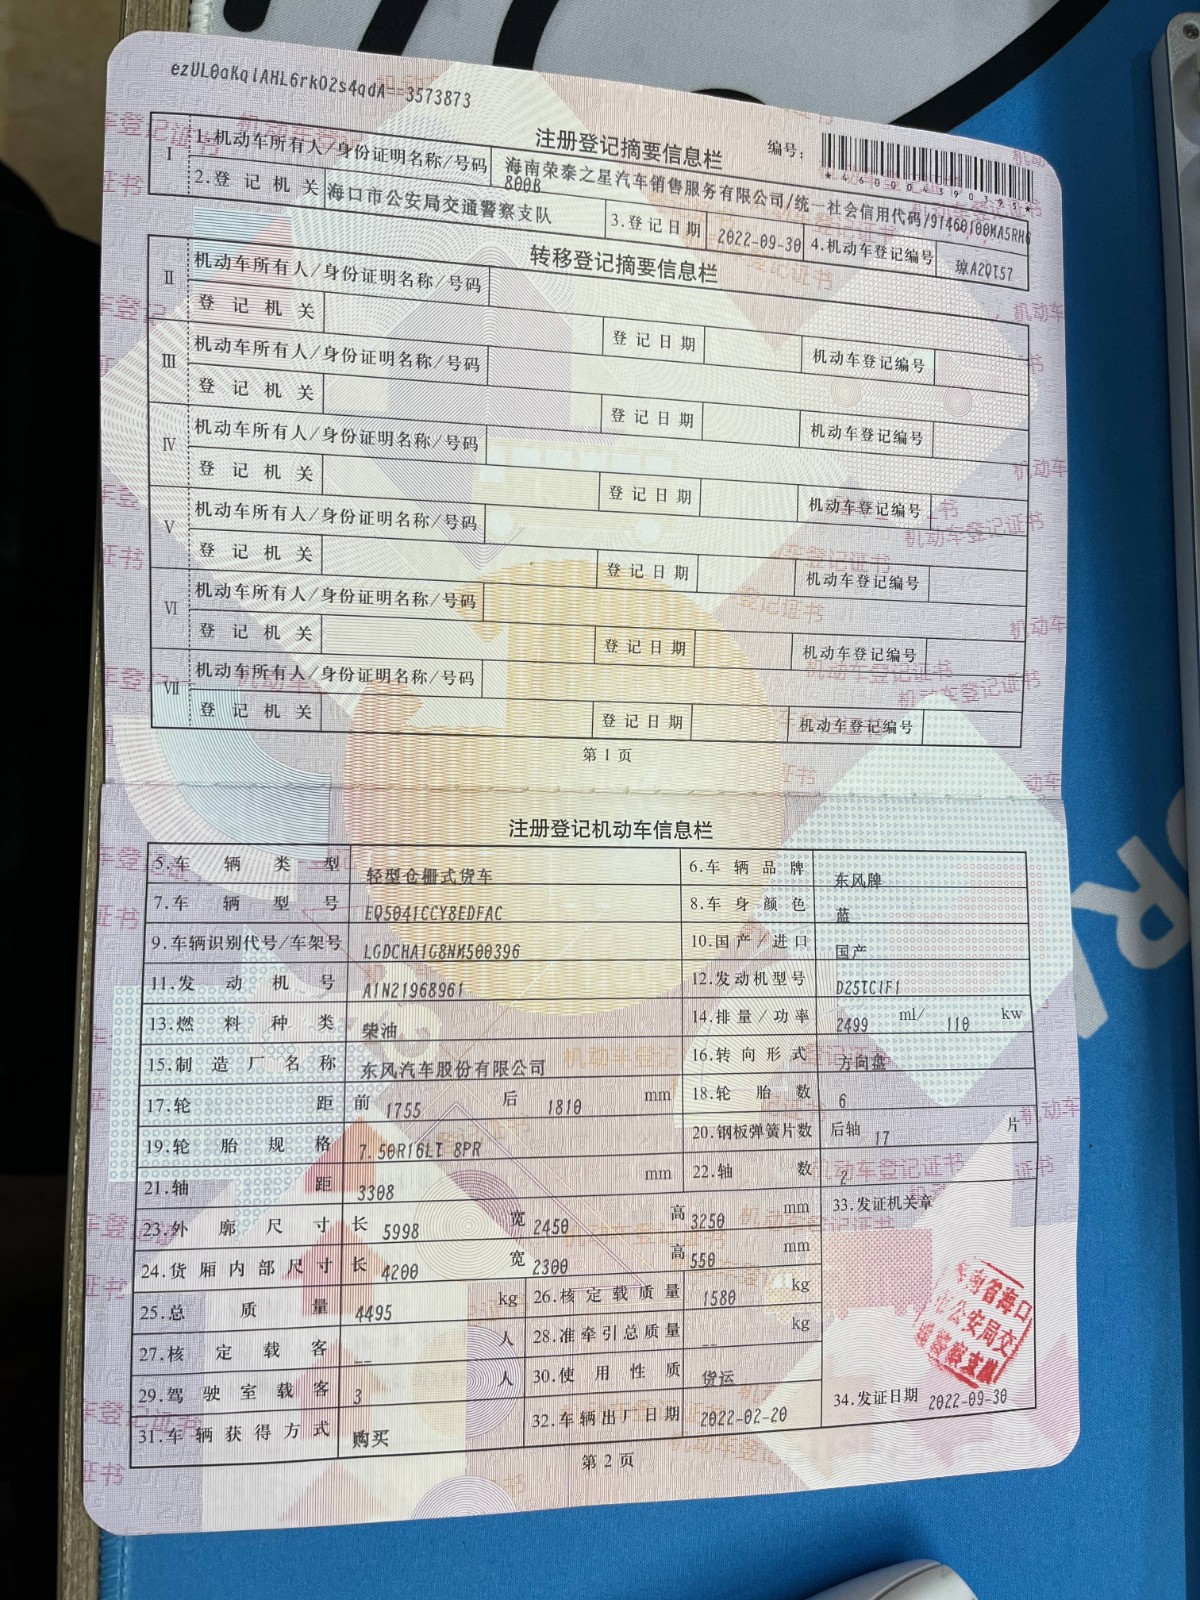 ezUL0aKqlAHL6rkO2s4qdA==3573873
注册登记摘要信息栏
编号：
*460004390323*
Ⅰ
1.机动车所有人/身份证明名称/号码 海南荣泰之星汽车销售服务有限公司/统一社会信用代码/91460100MA5RH6
800B
2.登记机关 海口市公安局交通警察支队 3.登记日期 2022-09-30 4.机动车登记编号 琼A2QT57
转移登记摘要信息栏
Ⅱ
机动车所有人/身份证明名称/号码
登记机关 登记日期 机动车登记编号
Ⅲ
机动车所有人/身份证明名称/号码
登记机关 登记日期 机动车登记编号
Ⅳ
机动车所有人/身份证明名称/号码
登记机关 登记日期 机动车登记编号
Ⅴ
机动车所有人/身份证明名称/号码
登记机关 登记日期 机动车登记编号
Ⅵ
机动车所有人/身份证明名称/号码
登记机关 登记日期 机动车登记编号
Ⅶ
机动车所有人/身份证明名称/号码
登记机关 登记日期 机动车登记编号
第1页
注册登记机动车信息栏
5.车辆类型 轻型仓栅式货车 6.车辆品牌 东风牌
7.车辆型号 EQ5041CCY8EDFAC 8.车身颜色 蓝
9.车辆识别代号/车架号 LGDCHA1G8NM500396 10.国产/进口 国产
11.发动机号 A1N21968961 12.发动机型号 D25TCIF1
13.燃料种类 柴油 14.排量/功率 2499 ml/ 110 kw
15.制造厂名称 东风汽车股份有限公司 16.转向形式 方向盘
17.轮距 前 1755 后 1810 mm 18.轮胎数 6
19.轮胎规格 7.50R16LT 8PR 20.钢板弹簧片数 后轴 17 片
21.轴距 3308 mm 22.轴数 2
23.外廓尺寸 长 5998 宽 2450 高 3250 mm 33.发证机关章
24.货厢内部尺寸 长 4200 宽 2300 高 550 mm
25.总质量 4495 kg 26.核定载质量 1580 kg
27.核定载客 -- 人 28.准牵引总质量 -- kg
29.驾驶室载客 3 人 30.使用性质 货运
31.车辆获得方式 购买 32.车辆出厂日期 2022-02-20 34.发证日期 2022-09-30
海南省海口
市公安局交
通警察支队
第2页